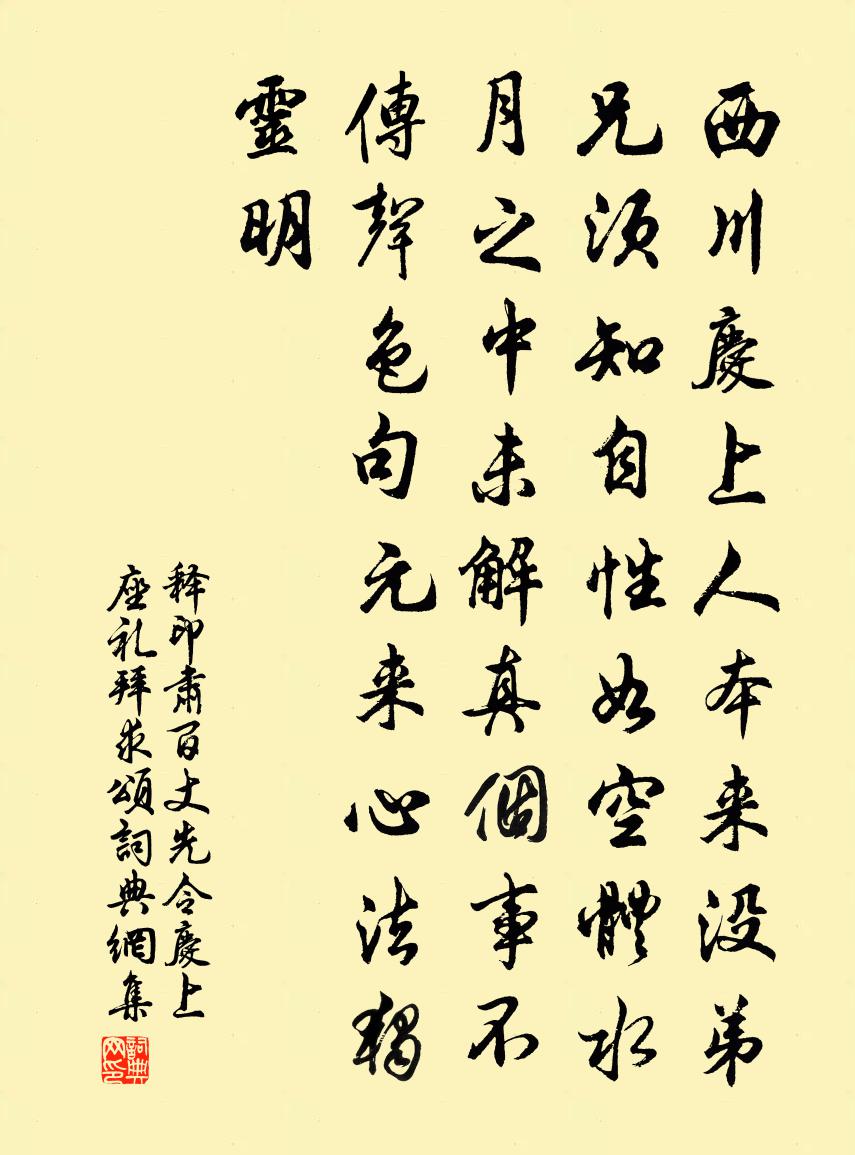 西川慶上人本来没弟
兄須知自性如空體水
月之中未解真個事不
傳聲色句元来心法獨
靈明
释印肃百丈先令慶上
座礼拜求頌詞典網集
詞典
网印